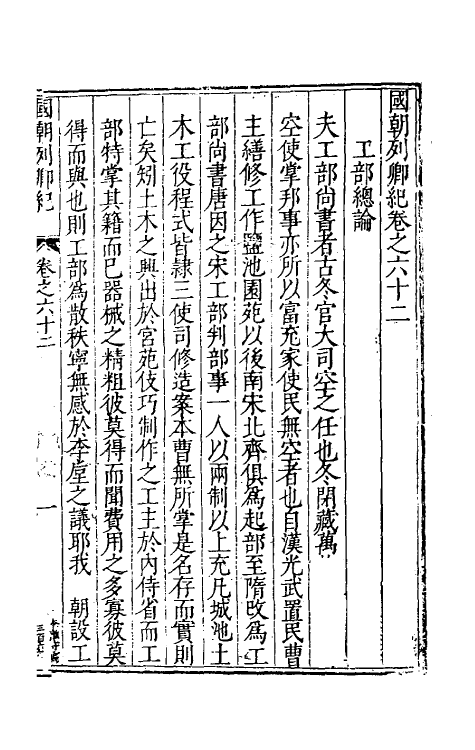 國朝列卿紀卷之六十二
工部總論
夫工部尚書者古冬官大司空之任也冬閉藏萬
空使掌邦事亦所以富充家使民無空者也自漢光武置民曹
主繕修工作鹽池園苑以後南宋北齊俱爲起部至隋改爲工
部尚書唐因之宋工部判部事一人以兩制以上充凡城池土
木工役程式皆隸三使司修造案本曹無所掌是名存而實則
亡矣矧土木之興出於宮苑伎巧制作之工主於內侍省而工
部特掌其籍而已器械之精粗彼莫得而聞費用之多寡彼莫
得而與也則工部爲散秩寧無感於李
之議耶我 朝設工
國朝列卿紀
卷之六十二
一